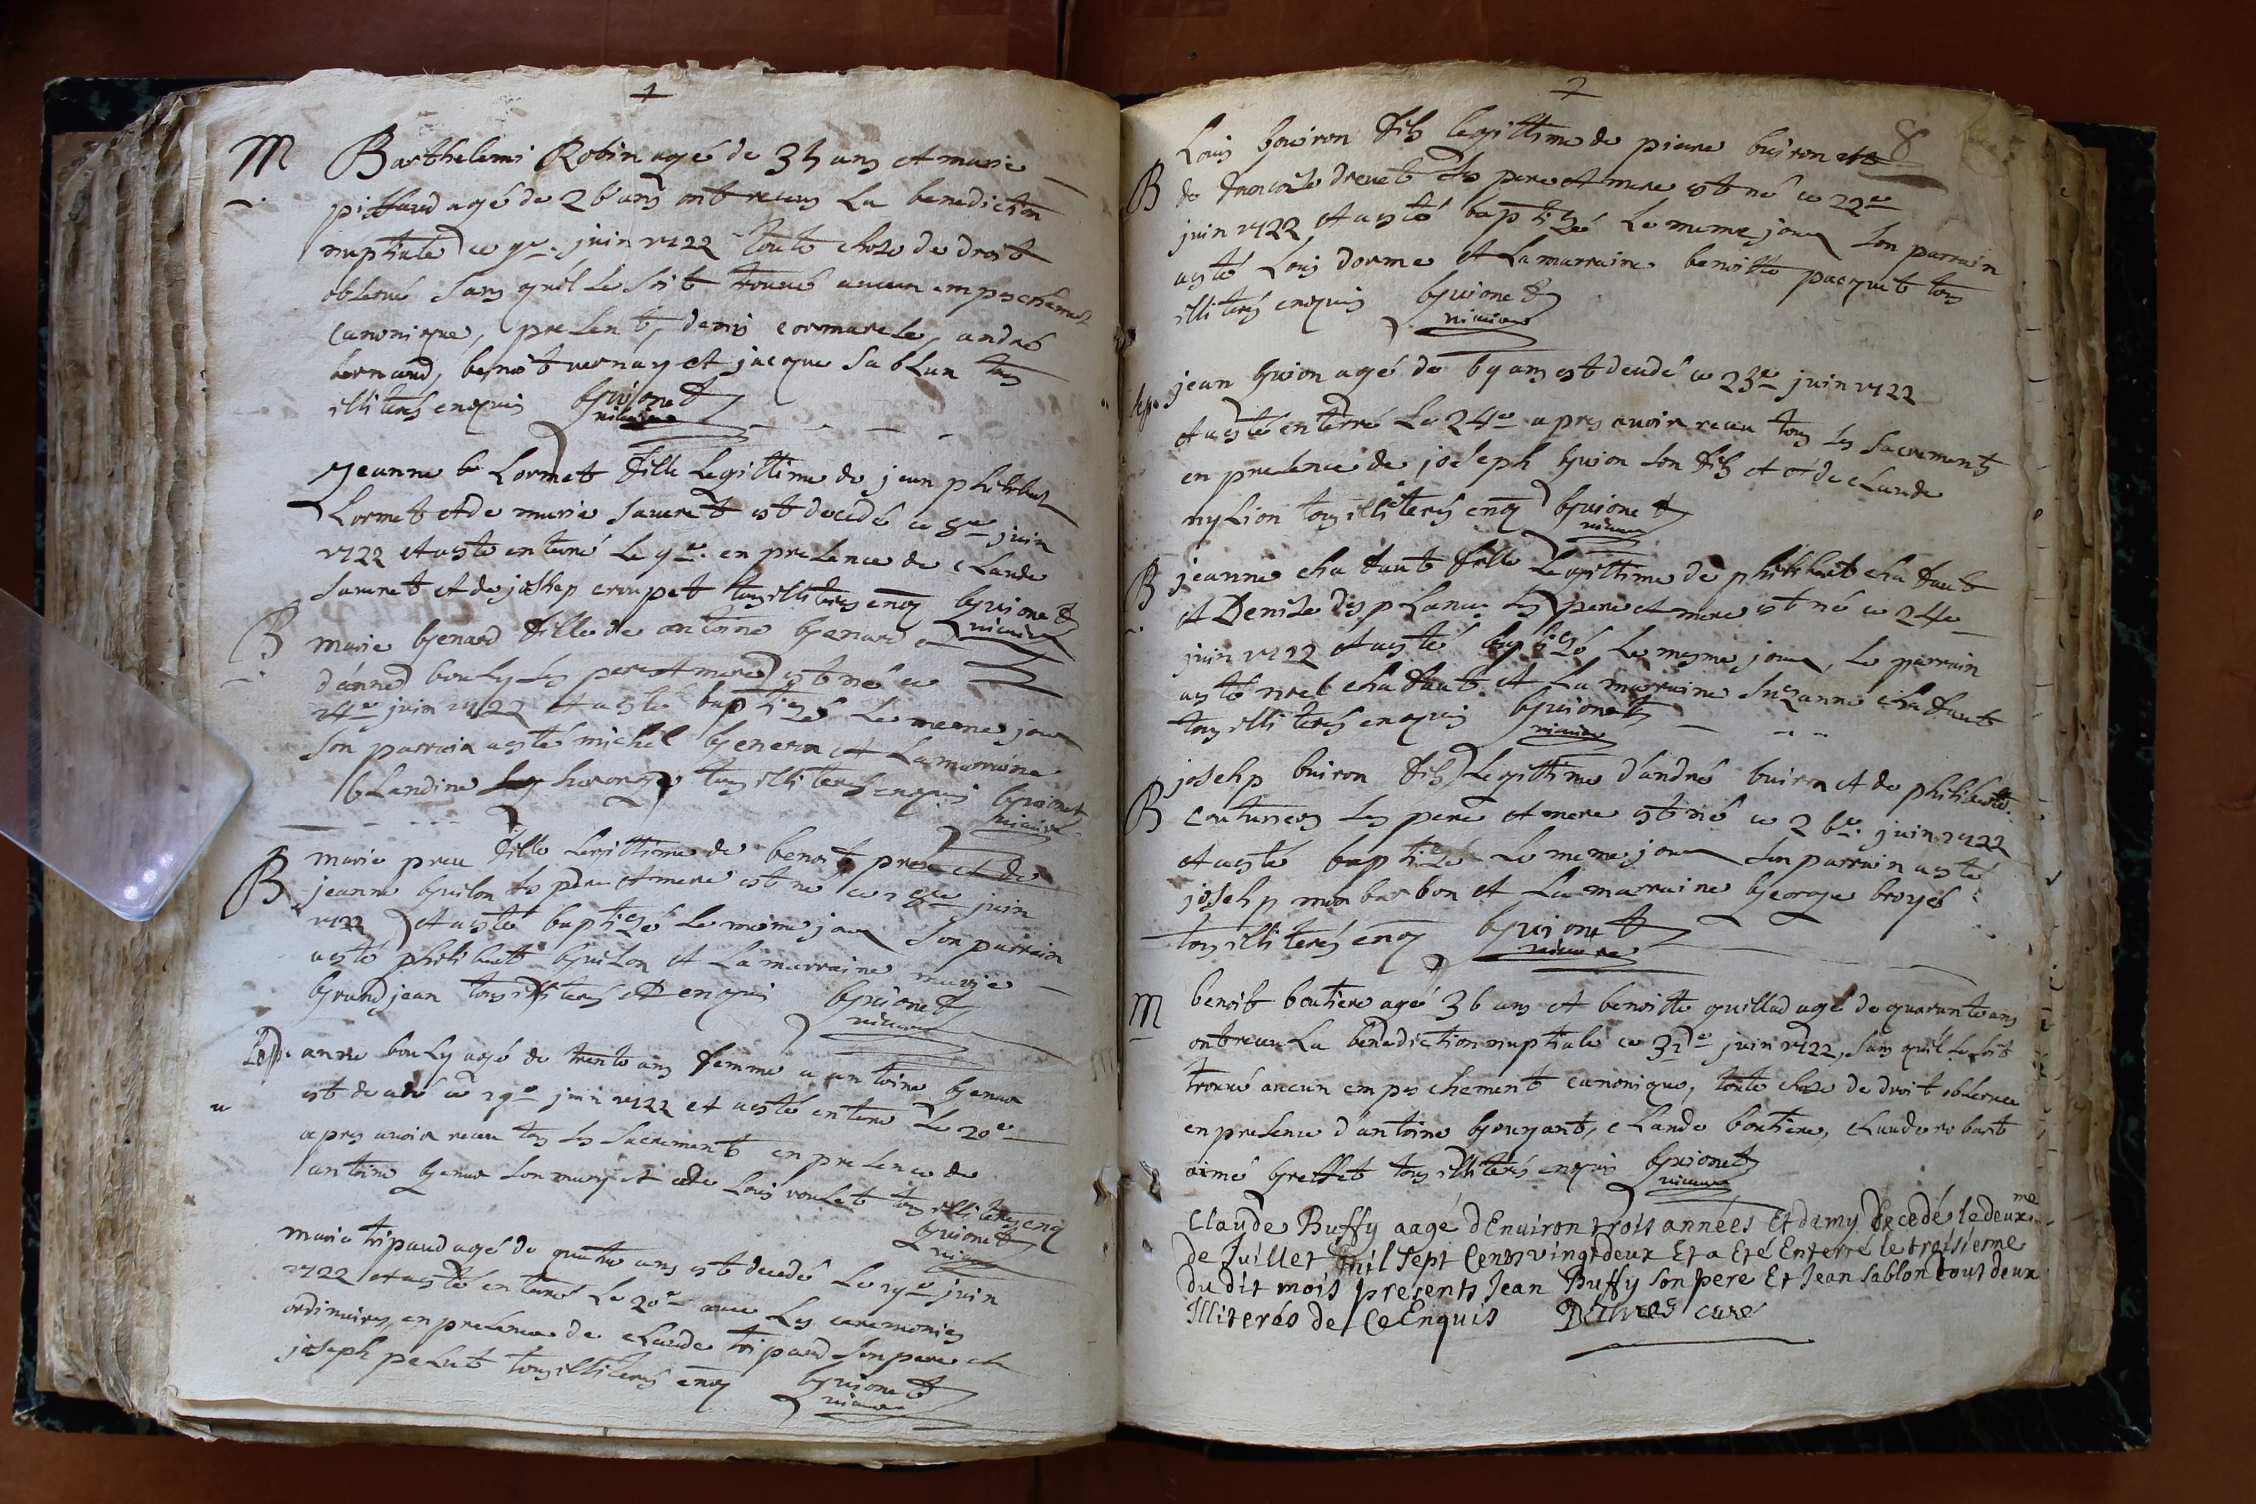 M Barthelemi Robin agé de 35 ans et marie
pittaud agé de 26 ans ont receus La benediction
nuptiale ce 9e juin 1722 toute chose de droit
obserué sans quil se soit trouué aucun empeschement
canonique, present, denis cormarele, andré
bernard, benoit uernay et jacque sablun tous
illiterés enquis guionet
uicaire
jeanne Lormet fille Legittime de jean philibert
Lormet et de marie sauret est decedé ce 8e juin
1722 et a esté enterré Le 9e en presence de claude
sauret et de joshep croupet tous illiterés enq guionet
uicaire
B marie genard fille de antoine genard et
d'anne bouly ses pere et mere est né ce
14e juin 1722 et a esté baptizé le meme jour
son parrain a esté michel genera et La marraine
blandine tous illiterés enquis guionet
uicaire
B marie preu fille Legittime de benoit preu et de
jeanne guilon ses pere et mere est né ce 18e juin
1722 et a esté baptizé Le meme jour son parrain
a esté philibert guilon et La marraine marie
grandjean tous illiterés et enquis guionet
uicaire
Sep. anne bouly agé de trente ans femme a antoine genar
est decedé ce 19e juin 1722 et a esté enterré Le 20e
apres auoir receu tous les sacrements en presence de
antoine genar son mary et de Louis roulet tous illiterés enq
guionet
uicaire
marie tripaud agé de quatre ans est decedé Le 19e juin
1722 et a esté enterré Le 20e auec Les ceremonies
ordinaires, en presence de claude tripaud son pere et
joseph pelut tous illiterés enq guionet
uicaire
8
B Louis buiron fils legittime de pierre buiron et
de francoise dreuet ses pere et mere est né ce 22e
juin 1722 et a esté baptizé Le meme jour son parrain
a esté Louis dorme et La marraine benoitte pacquet tous
illiterés enquis guionet
uicaire
sep. jean guion agé de 69 ans est decedé ce 23e juin 1722
et a esté enterré Le 24e apres auoir receu tous les sacrements
en presence de joseph guion son fils et de claude
nylion tous illiterés enq guionet
uicaire
B jeanne chafaut fille Legittime de philibert chafaut
et Denise desplanu ses pere et mere est né ce 24e
juin 1722 et a esté baptizé Le mesme jour, Le parrain
a esté chafaut et La marraine suzanne chafaut
tous illiterés enquis guionet
uicaire
B josehp buiron fils Legittime d'andré buiron et de philiberte
couturier ses pere et mere est né ce 26e juin 1722
et a esté baptizé Le meme jour son parrain a esté
josehp monbarbon et La marraine george broyer
tous illiterés enq guionet
uicaire
M benoit boutiere agé 36 ans et benoitte guillad agé de quarante ans
ont receu La benediction nuptiale ce 31e juin 1722, sans quil se soit
trouué aucun empeschement canonique, toute chose de droit obseruee
en presence d'antoine gouyant, claude boutiere, claude robast
aimé greffet tous illiterés enquis guionet
uicaire
Claude Buffy aagé d'Enuiron trois années Et demy Decedé le deuxme
de Juillet mil sept Cents vingt deux Et a Eté Enterré le troisieme
du dit mois presents Jean Buffy son pere Et Jean sablon tout deux
Illiterés de ce Enquis curé